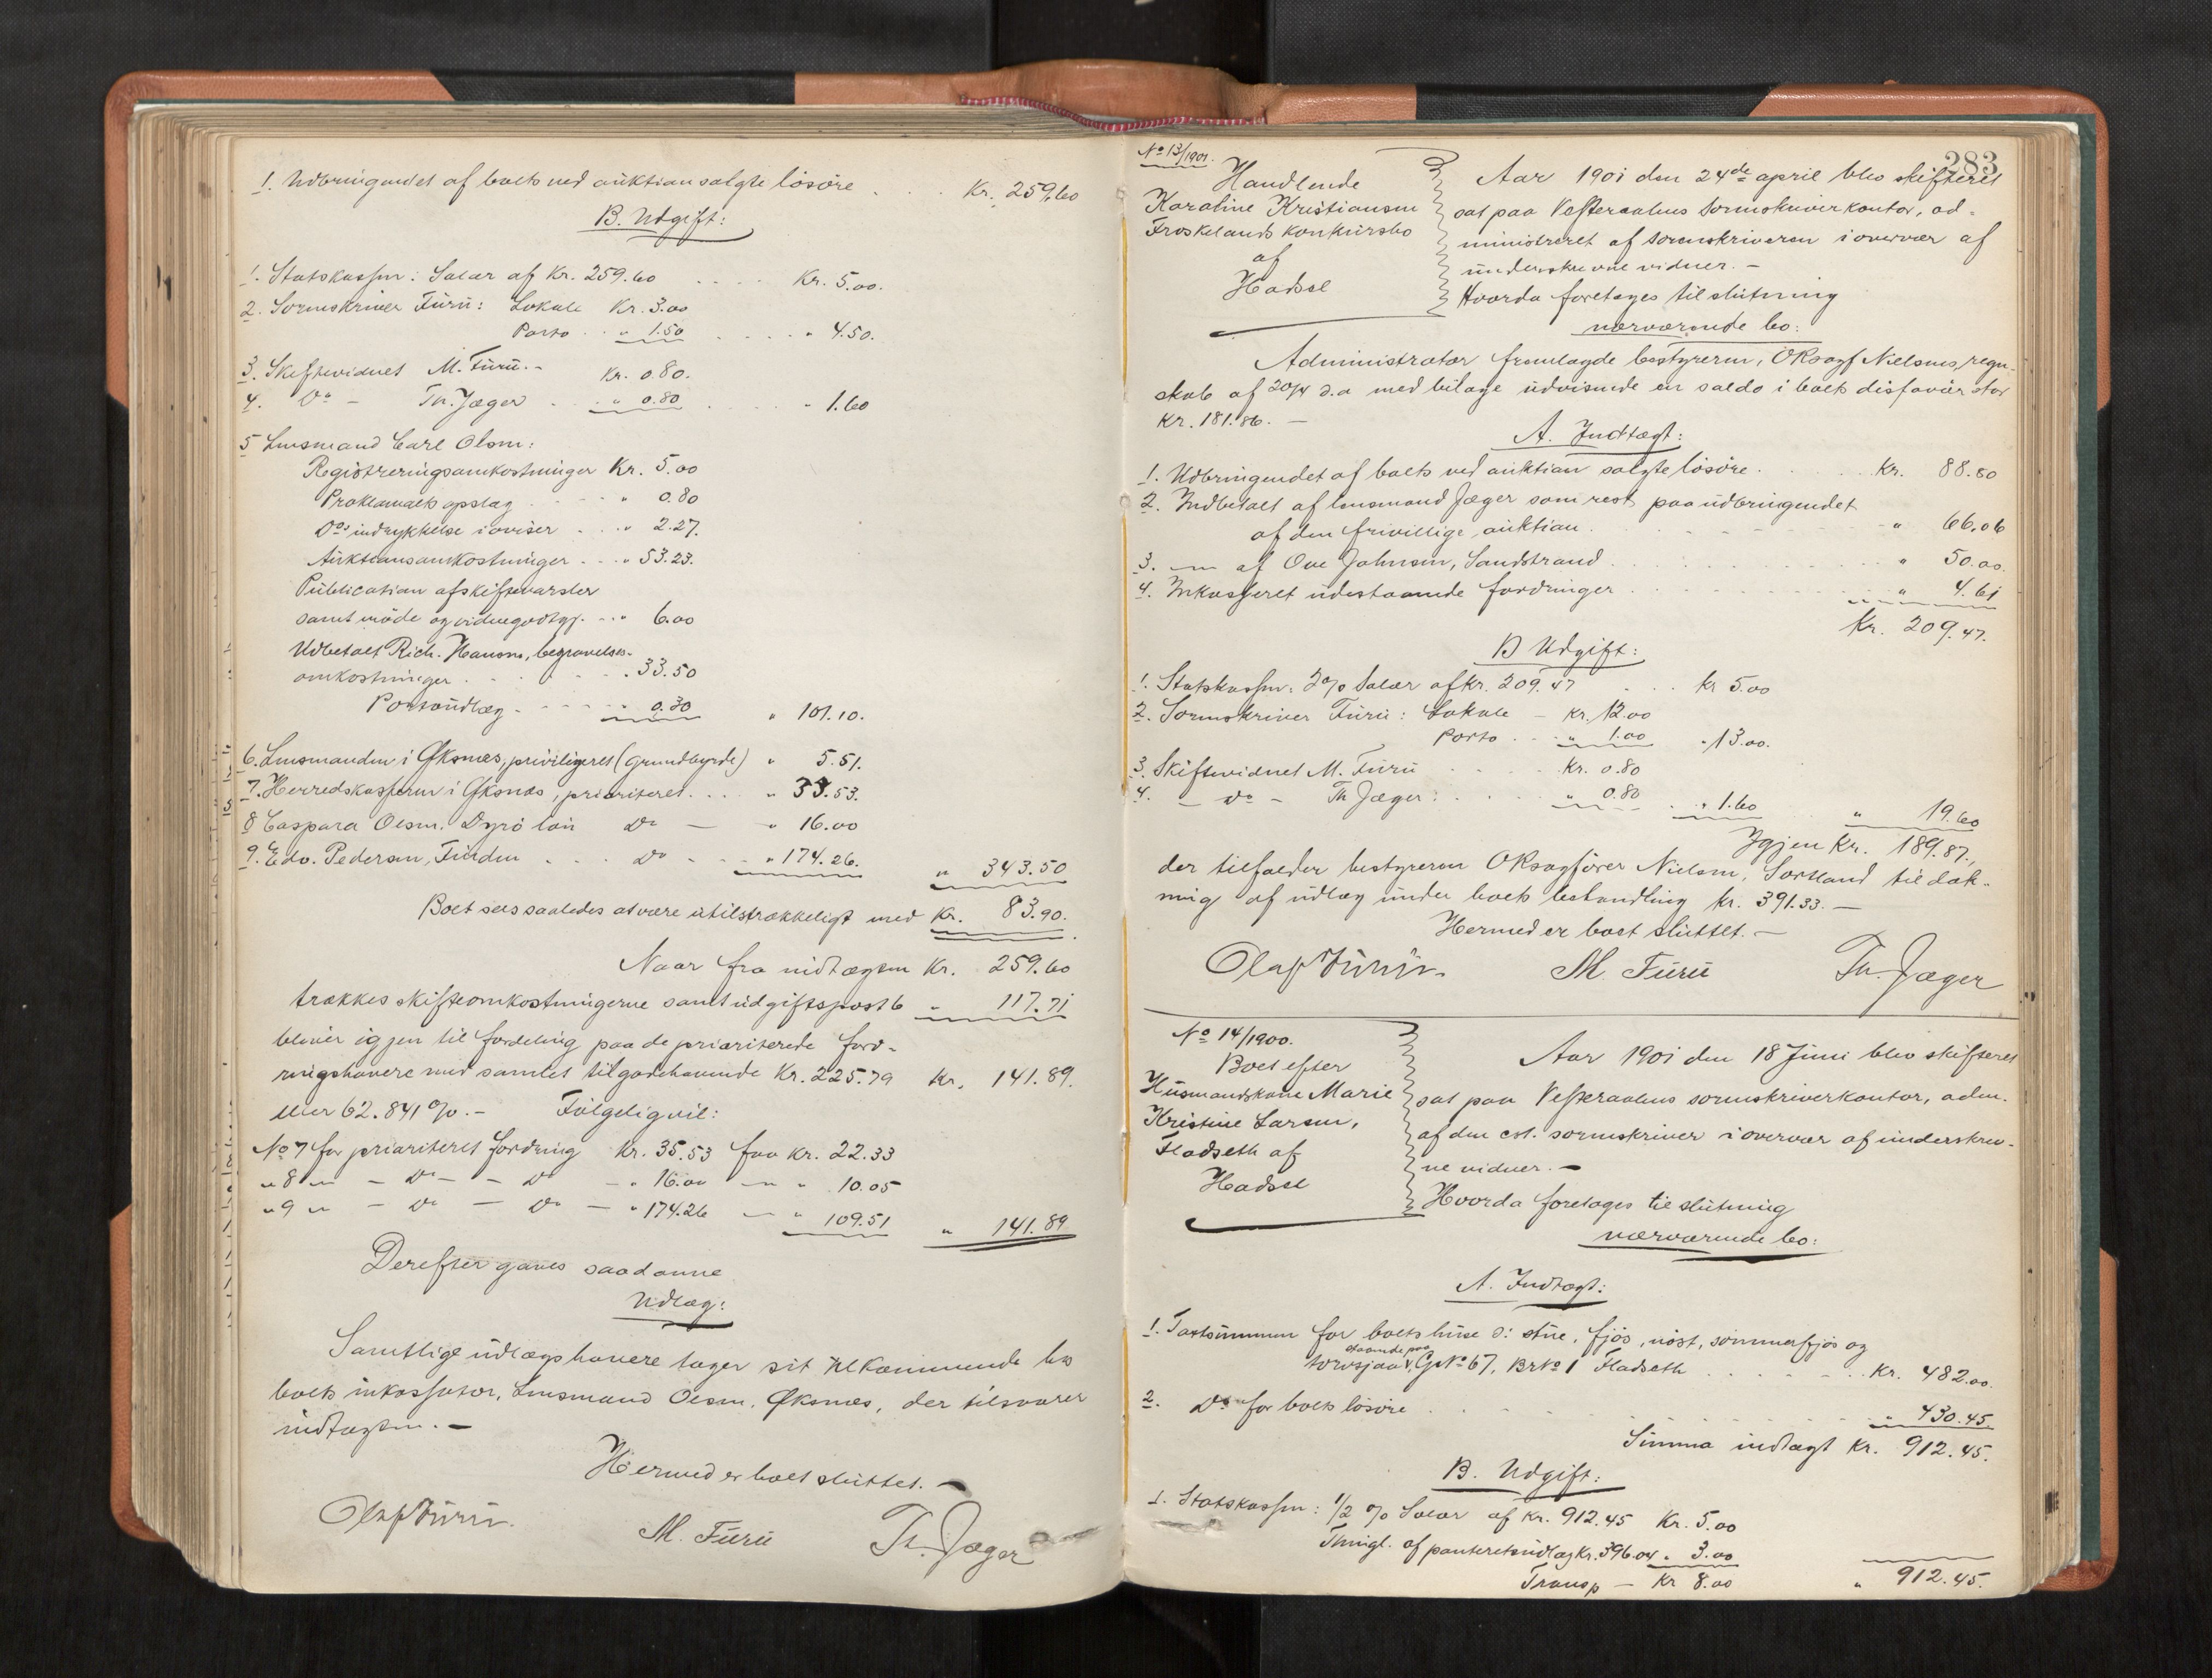 1. Udbringendet af boets ved auktion solgte lösöre . . . Kr. 259,60
B. Udgift:
1. Statskassen: Salær af Kr. 259.60 . . . . Kr. 5.00.
2. Sorenskriver Furu: Lokale Kr. 3.00
Porto . . " 1.50 . . . . " 4.50.
3. Skiftevidnet M. Furu.- Kr. 0.80.
4. Do - Th. Jæger . . " 0.80 . . . . " 1.60
5 Lensmand Carl Olsen:
Registreringsomkostninger Kr. 5.00
Proklamaets opslag . . . " 0.80
Dos indrykkelse i aviser . . " 2.27.
Auktionsomkostninger . . . " 53.23.
Publication af skiftevarsler
samt möde og vidnegodtgj. . . " 6.00
Udbetalt Rich. Hansen, begravelses-
omkostninger . . . . . 33.50
Portoudlæg . . . . " 0.30 " 101.10.
6. Lensmanden i Øksnes, priviligeret (grundbyrde) " 5.51.
7. Herredskassereren i Øksnes, prioriteret . . . " 35.53.
8 Caspara Olsen. Dyrö lön Do — " 16.00
9. Edv. Pedersen, Finden . . . Do . . . " 174.26. " 343.50
Boet sees saaledes at være utilstrækkeligt med Kr. 83.90.
Naar fra indtægten Kr. 259.60
trækkes skifteomkostningerne samt udgiftspost 6 " 117.71
bliver igjen til fordeling paa de prioriterede ford-
ringshavere med samlet tilgodehavende Kr. 225.79 Kr. 141.89.
eller 62.841 %. - Fölgelig vil:
No 7 for prioriteret fordring Kr. 35.53 faa Kr. 22.33
" 8 " — Do — Do — " 16.00 — " 10.05
" 9 " — Do — Do — " 174.26 — " 109.51 " 141.89
Derefter gaves saadanne
Udlæg:
Samtlige udlægshavere tager sit tilkommende hos
boets inkassator, Lensmand Olsen, Øksnes, der tilsvarer
indtægten. —
Hermed er boet sluttet. —
Olaf Furu. M. Furu Th. Jæger
283
No 13/1901.
Handlende
Karoline Kristiansen
Froskelands konkursbo
af
Hadsel
Aar 1901 den 24de april blev skifteret
sat paa Vesteraalens Sorenskriverkontor, ad-
ministreret af sorenskriveren i overvær af
underskrevne vidner. —
Hvorda foretages til slutning
nærværende bo:
Administrator fremlagde bestyreren, OKsagf Nielsens, regn-
skab af 20/4 d.a med bilage udvisende en saldo i boets disfavör stor
Kr. 181.86. —
A. Indtægt:
1. Udbringendet af boets ved auktion solgte lösöre . . . Kr. 88.80
2. Indbetalt af lensmand Jæger som rest paa udbringendet
af den frivillige auktion . . . . . " 66.06
3. — af Ove Johnsen, Sandstrand . . . . . " 50.00.
4. Inkasseret udestaaende fordringer . . . . " 4.61
Kr. 209.47.
B Udgift:
1. Statskassen: 2% Salær af kr. 209.47 . . . kr 5.00
2. Sorenskriver Furu: Lokale — kr. 12.00
Porto . . " 1.00 " 13.00.
3. Skiftevidnet M. Furu . . . Kr. 0.80
4. — Do — Th Jæger: . . . " 0.80 . " 1.60 " 19.60
Igjen Kr. 189.87,
der tilfalder bestyreren OKsagförer Nielsen, Sortland til dæk-
ning af udlæg under boets behandling kr. 391.33. —
Hermed er boet sluttet. —
Olaf Furu. M. Furu Th. Jæger
No 14/1900.
Boet efter
Husmandskone Marie
Kristine Larsen,
Fladseth af
Hadsel
Aar 1901 den 18 Juni blev skifteret
sat paa Vesteraalens sorenskriverkontor, adm.
af den cst. sorenskriver i overvær af underskrev-
ne vidner. —
Hvorda foretages til slutning
nærværende bo:
A. Indtægt:
1. Taxtsummen for boets huse ɔ: stue, fjös, nöst, sommerfjös og
torvsjaa staaende paa G No 67, Br No 1 Fladseth . . . . Kr. 482.00.
2. Do for boets lösöre . . . . . " 430.45.
Summa indtægt Kr. 912.45.
B. Udgift:
1. Statskassen: 1/2 % Salær af Kr. 912.45 Kr. 5.00
Thingl. af panteretsudlæg Kr. 396.04 " 3.00
Transp — Kr 8.00 " 912.45.